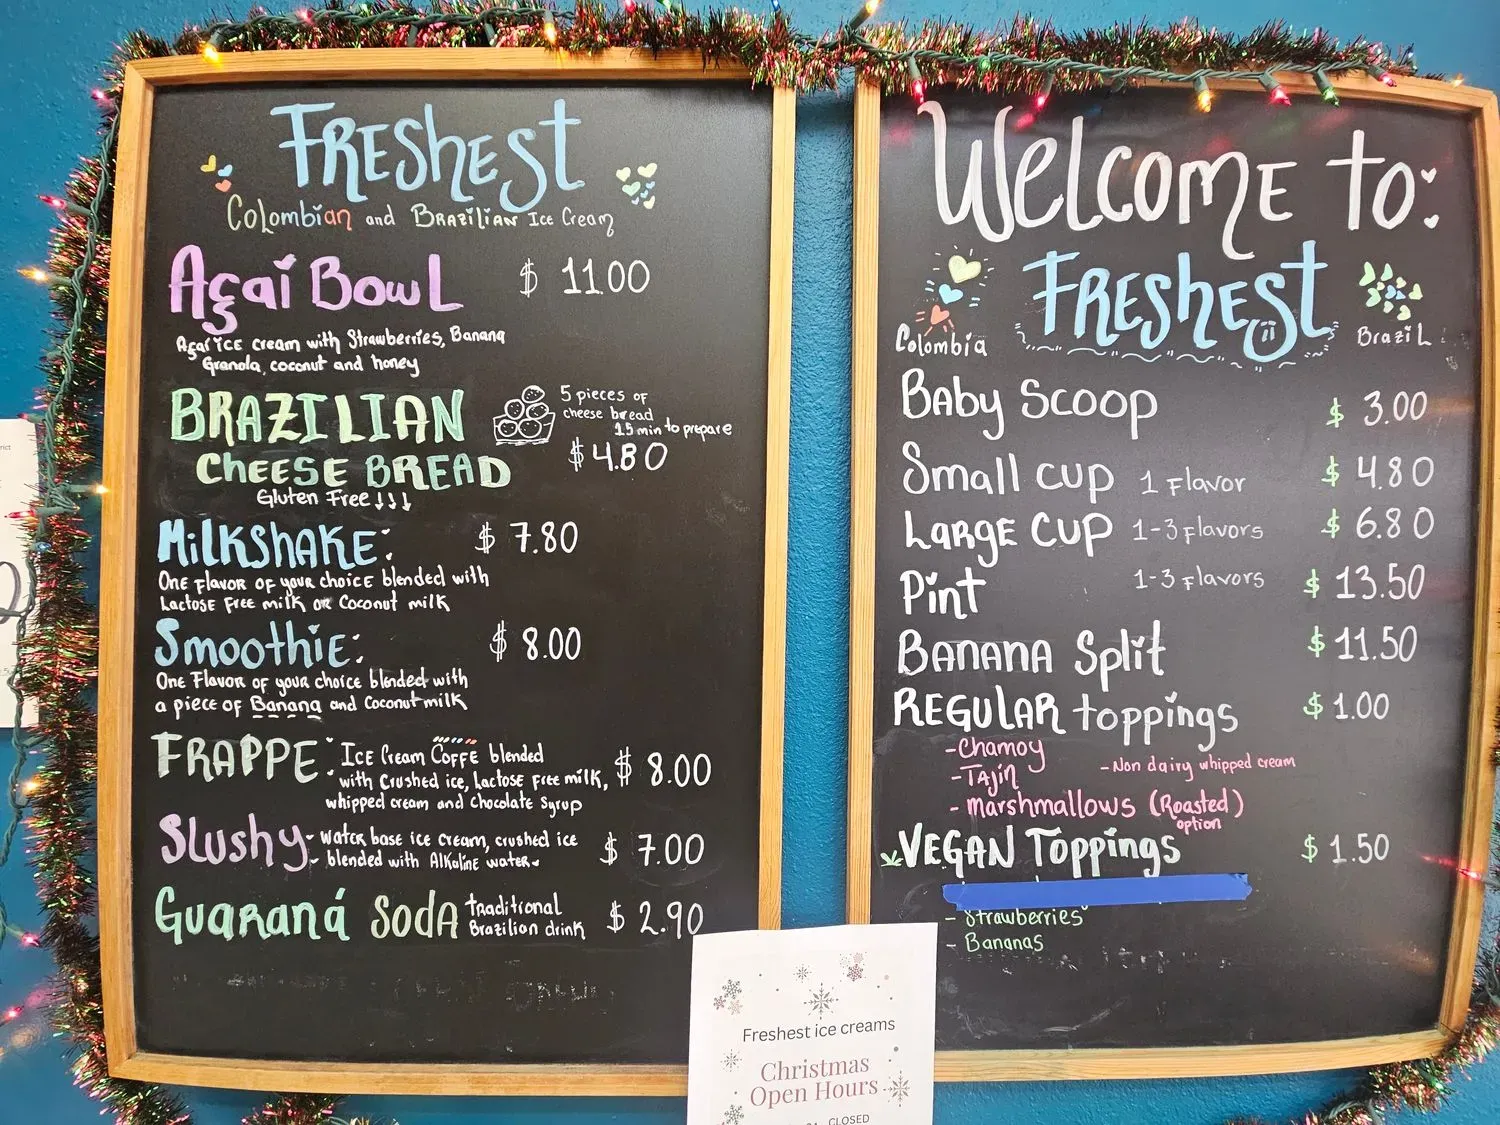 FREShEST
Colombian and BRAZiLiAN Ice Cream
Açaí BowL $ 11.00
Açaí ice cream with Strawberries, Banana
Granola, coconut and honey
BRAZILIAN
CHEESE BREAD
Gluten Free
5 pieces of
cheese bread
15 min to prepare
$ 4.80
MilkShAKE: $ 7.80
One flavor of your choice blended with
Lactose free milk or Coconut milk
Smoothie: $ 8.00
One Flavor of your choice blended with
a piece of Banana and Coconut milk
FRAPPE: Ice Cream Coffe blended
with Crushed ice, Lactose free milk, $ 8.00
whipped cream and chocolate syrup
Slushy - water base ice cream, crushed ice $ 7.00
- blended with Alkaline water -
Guaraná SodA traditional $ 2.90
Brazilian drink
Welcome to:
FREShEST
Colombia
Brazil
BAby Scoop $ 3.00
Small cup 1 Flavor $ 4.80
Large Cup 1-3 flavors $ 6.80
Pint 1-3 flavors $ 13.50
BANANA Split $ 11.50
REGULAR toppings $ 1.00
- Chamoy
- Tajin
- Non dairy whipped cream
- marshmallows (Roasted)
option
VEGAN Toppings $ 1.50
- Strawberries
- Bananas
Freshest ice creams
Christmas
Open Hours
CLOSED